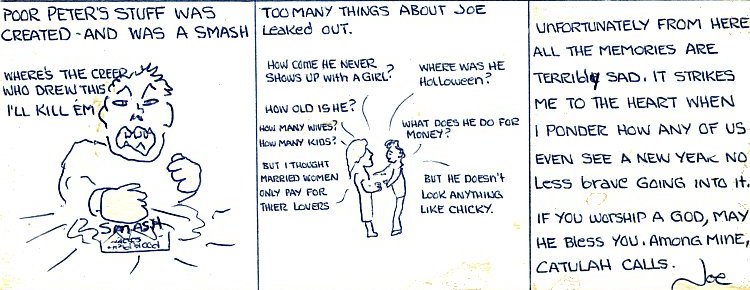 POOR PETER'S STUFF WAS
CREATED - AND WAS A SMASH
WHERE'S THE CREEP
WHO DREW THIS
I'LL KILL ÉM
SMASH
TOO MANY THINGS ABOUT JOE
LEAKED OUT.
HOW COME HE NEVER
SHOWS UP WITH A GIRL?
WHERE WAS HE
HALLOWEEN?
HOW OLD IS HE?
HOW MANY WIVES?
HOW MANY KIDS?
WHAT DOES HE DO FOR
MONEY?
BUT I THOUGHT
MARRIED WOMEN
ONLY PAY FOR
THIER LOVERS
BUT HE DOESN'T
LOOK ANYTHING
LIKE CHICKY.
UNFORTUNATELY FROM HERE
ALL THE MEMORIES ARE
TERRIBLY SAD. IT STRIKES
ME TO THE HEART WHEN
I PONDER HOW ANY OF US
EVEN SEE A NEW YEAR NO
LESS BRAVE GOING INTO IT.
IF YOU WORSHIP A GOD, MAY
HE BLESS YOU. AMONG MINE,
CATULAH CALLS.
Joe